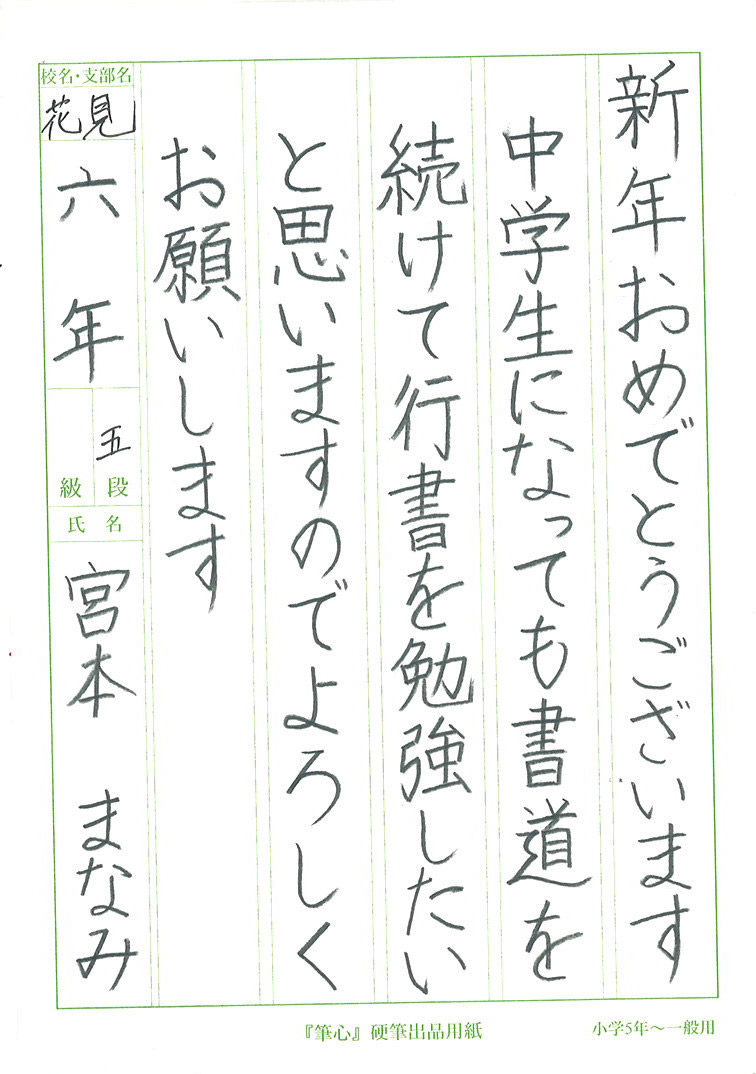 新年おめでとうございます
中学生になっても書道を
続けて行書を勉強したい
と思いますのでよろしく
お願いします
校名・支部名
花見
六年
五段
級
氏名
宮本 まなみ
『筆心』硬筆出品用紙
小学5年～一般用